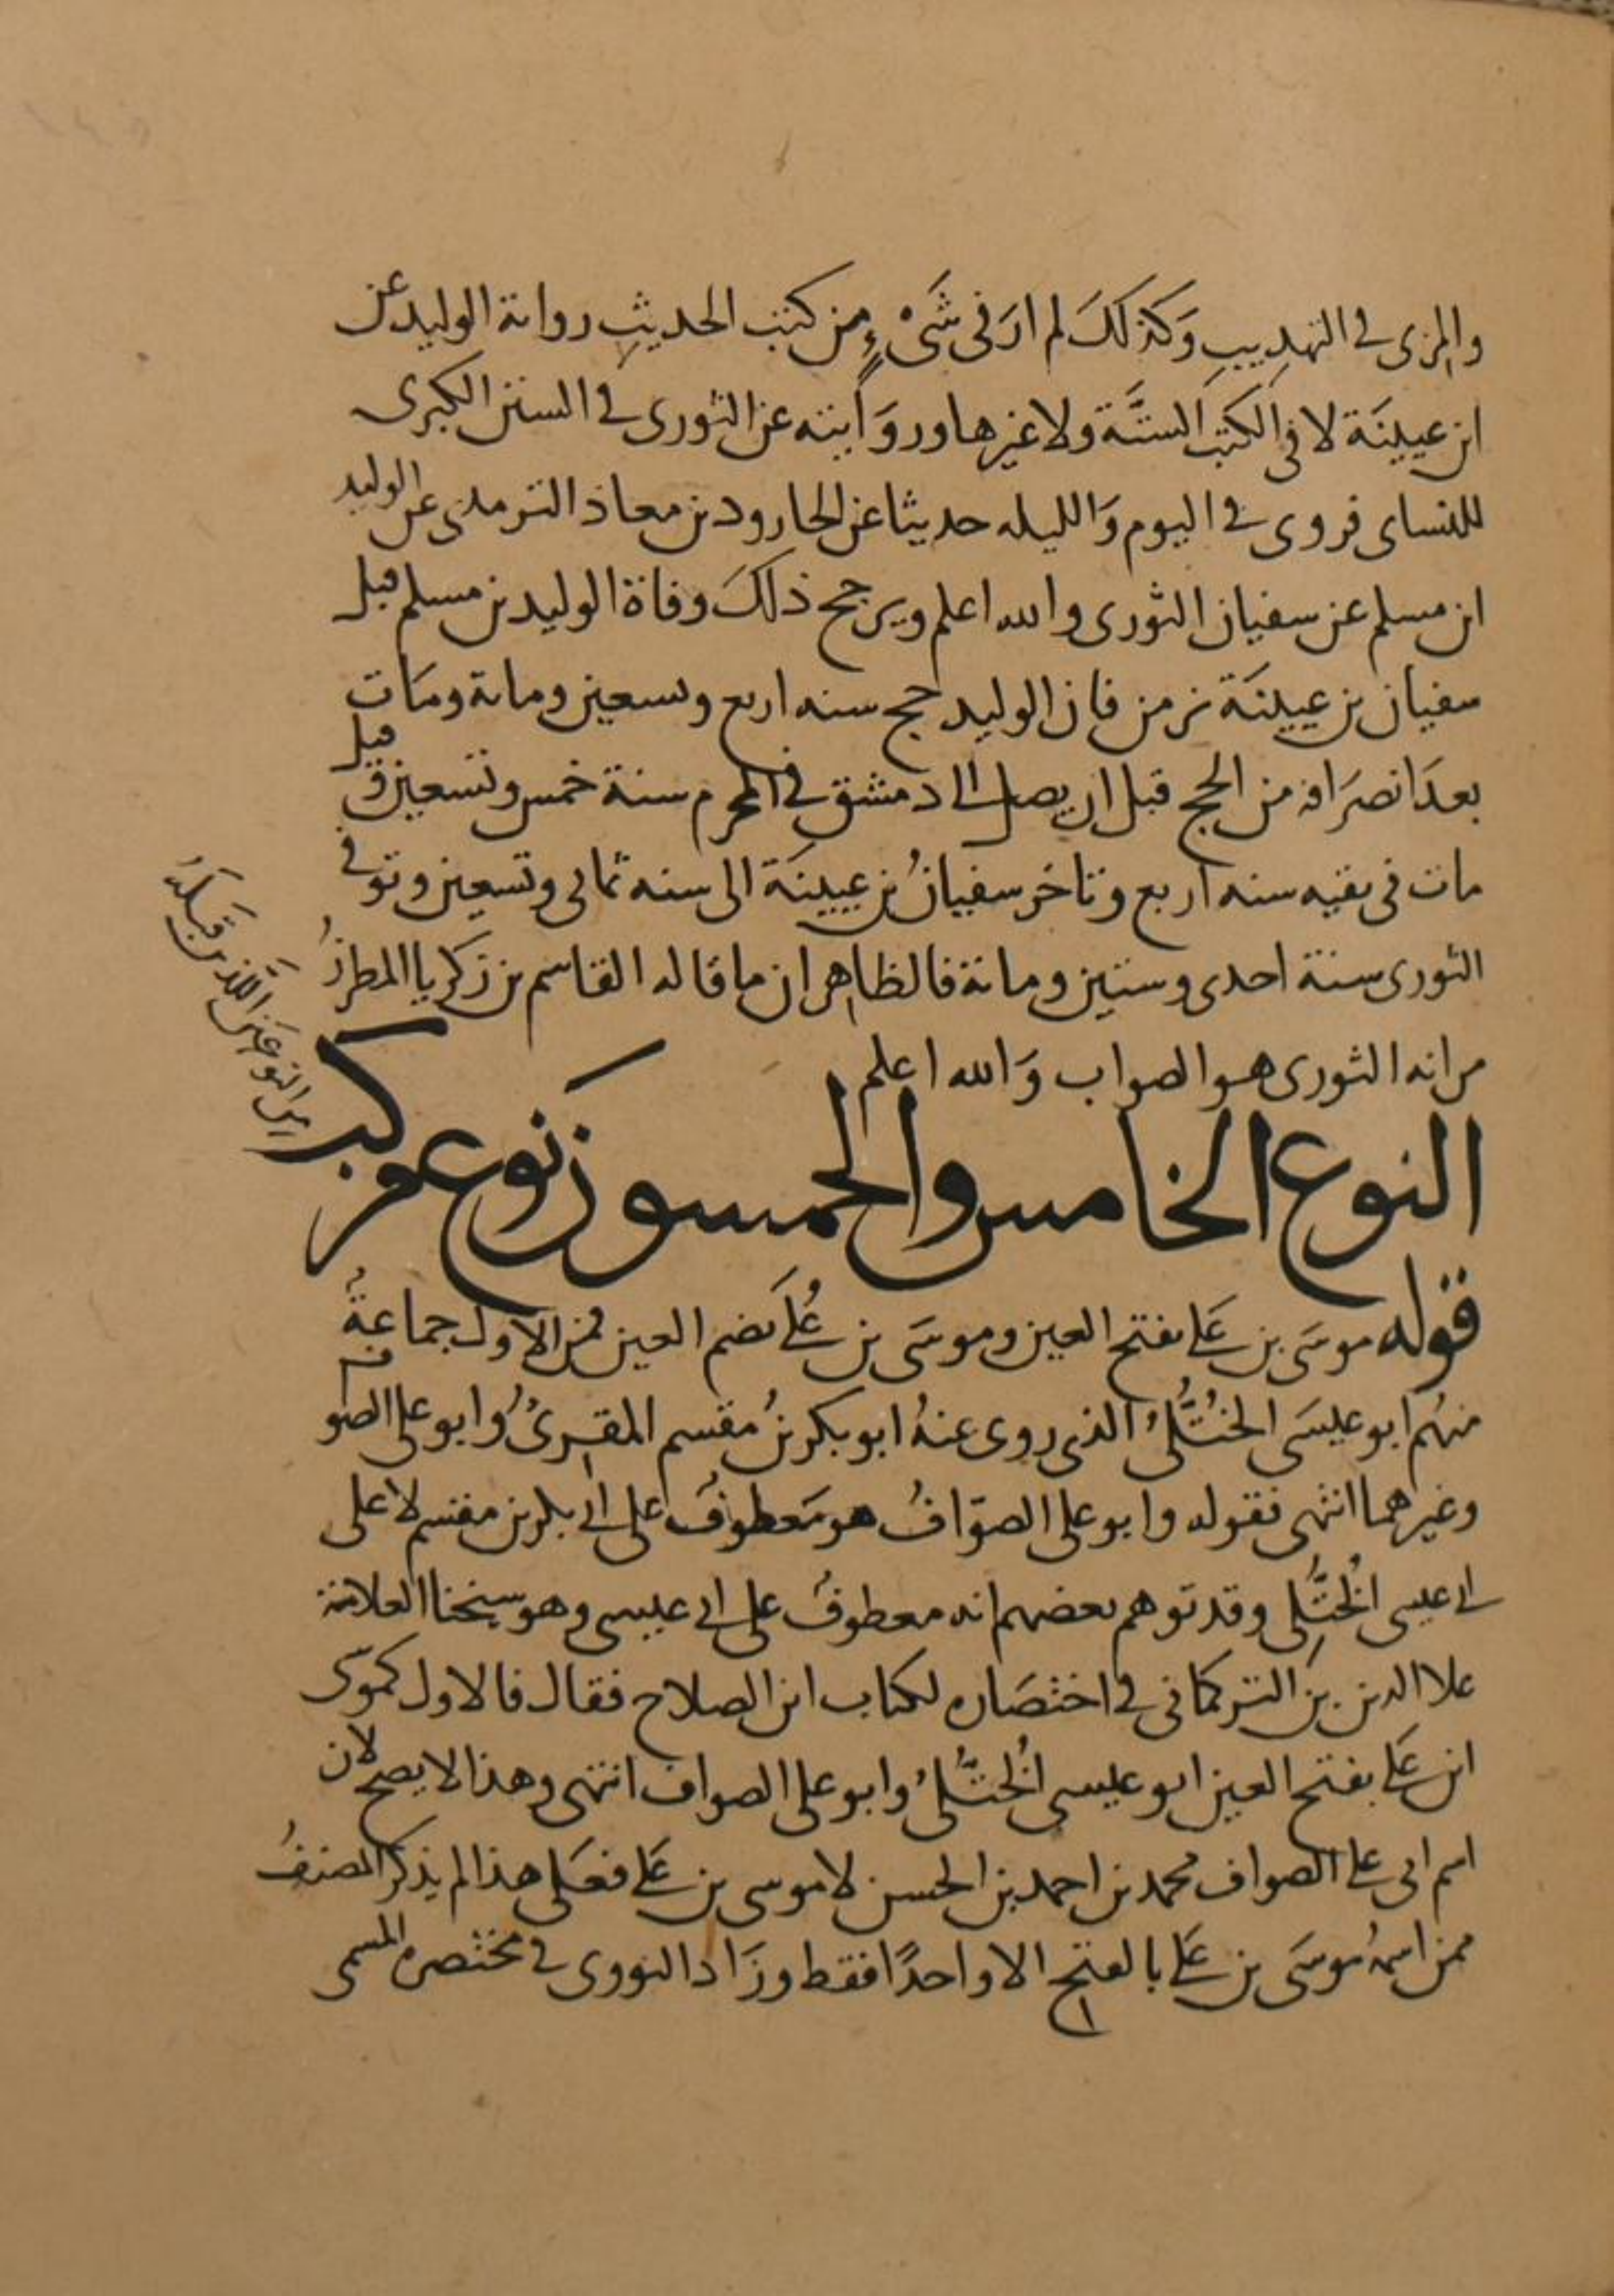 والمزى فى التهذيب وَكذلكَ لم ارَ فى شَىْءٍ من كتب الحديثِ رواية الوليد عن
ابن عيينَة لا فى الكتب الستَّة ولا غيرها وروَايته عن الثورى فى السنن الكبرى
للنساى فروى فى اليوم وَالليله حديثا عن الجارود بن معاذ الترمذى عن الوليد
ابن مسلم عن سفيان الثورى والله اعلم ويرجح ذلكَ وفاة الوليد بن مسلم قبل
سفيان بن عيينَة بزمن فان الوليد حج سنه اربع وتسعين وماىة ومَات
بعدَ انصرَافه من الحج قبل ان يصل الى دمشق فى المحرم سنة خمس وتسعين وقيل
مات فى بقيه سنه اربع وتاخر سفيانُ بن عيينَة الى سنه ثمان وتسعين وتوفى
الثورى سنة احدى وستين وماىة فالظاهر ان ما قاله القاسم بن زكريا المطرزُ
من انه الثورى هو الصواب وَالله اعلم
النوع الخامس والخمسون نوع مركب
من النوعَين اللّذين قبَلَهُ
قوله موسَى بن عَلى بفتح العين وموسَى بن عُلَى بضم العين فمن الاول جماعةُ
منهُم ابو عيسَى الخُتَّلىُّ الذى روى عنهُ ابو بكر بنُ مقسم المقرىُ وابو على الصواف
وغيرهما انتهى فقوله وابو على الصوّافُ هو مَعطوفُ على ابى بكر بن مقسم لا على
ابى عيسى الخُتَّلِى وقد توهم بعضهم انه معطوفُ على ابى عيسى وهو شيخنا العلامة
علا الدين بن التركمانى فى اختصَاره لكتاب ابن الصلاح فقال فالاول كموسَى
ابن عَلى بفتح العين ابو عيسى الخُتَّلىُ وابو على الصواف انتهى وهذا لا يصح لان
اسم ابى على الصواف محمد بن احمد بن الحسن لا موسى بن عَلى فعَلى هذا لم يذكر المصنفُ
ممن اسمهُ موسَى بن عَلى بالفتح الا واحدًا فقط وزَاد النووى فى مختصره المسمى